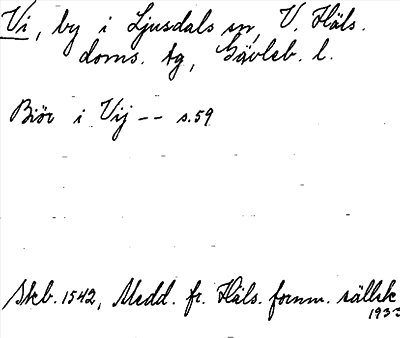 Vi, by i Ljusdals sn, V. Häls.
doms. tg, Gävleb. l.
Biör i Vij -- s. 59
Skb. 1542, Medd. fr. Häls. fornm. sällsk
1933